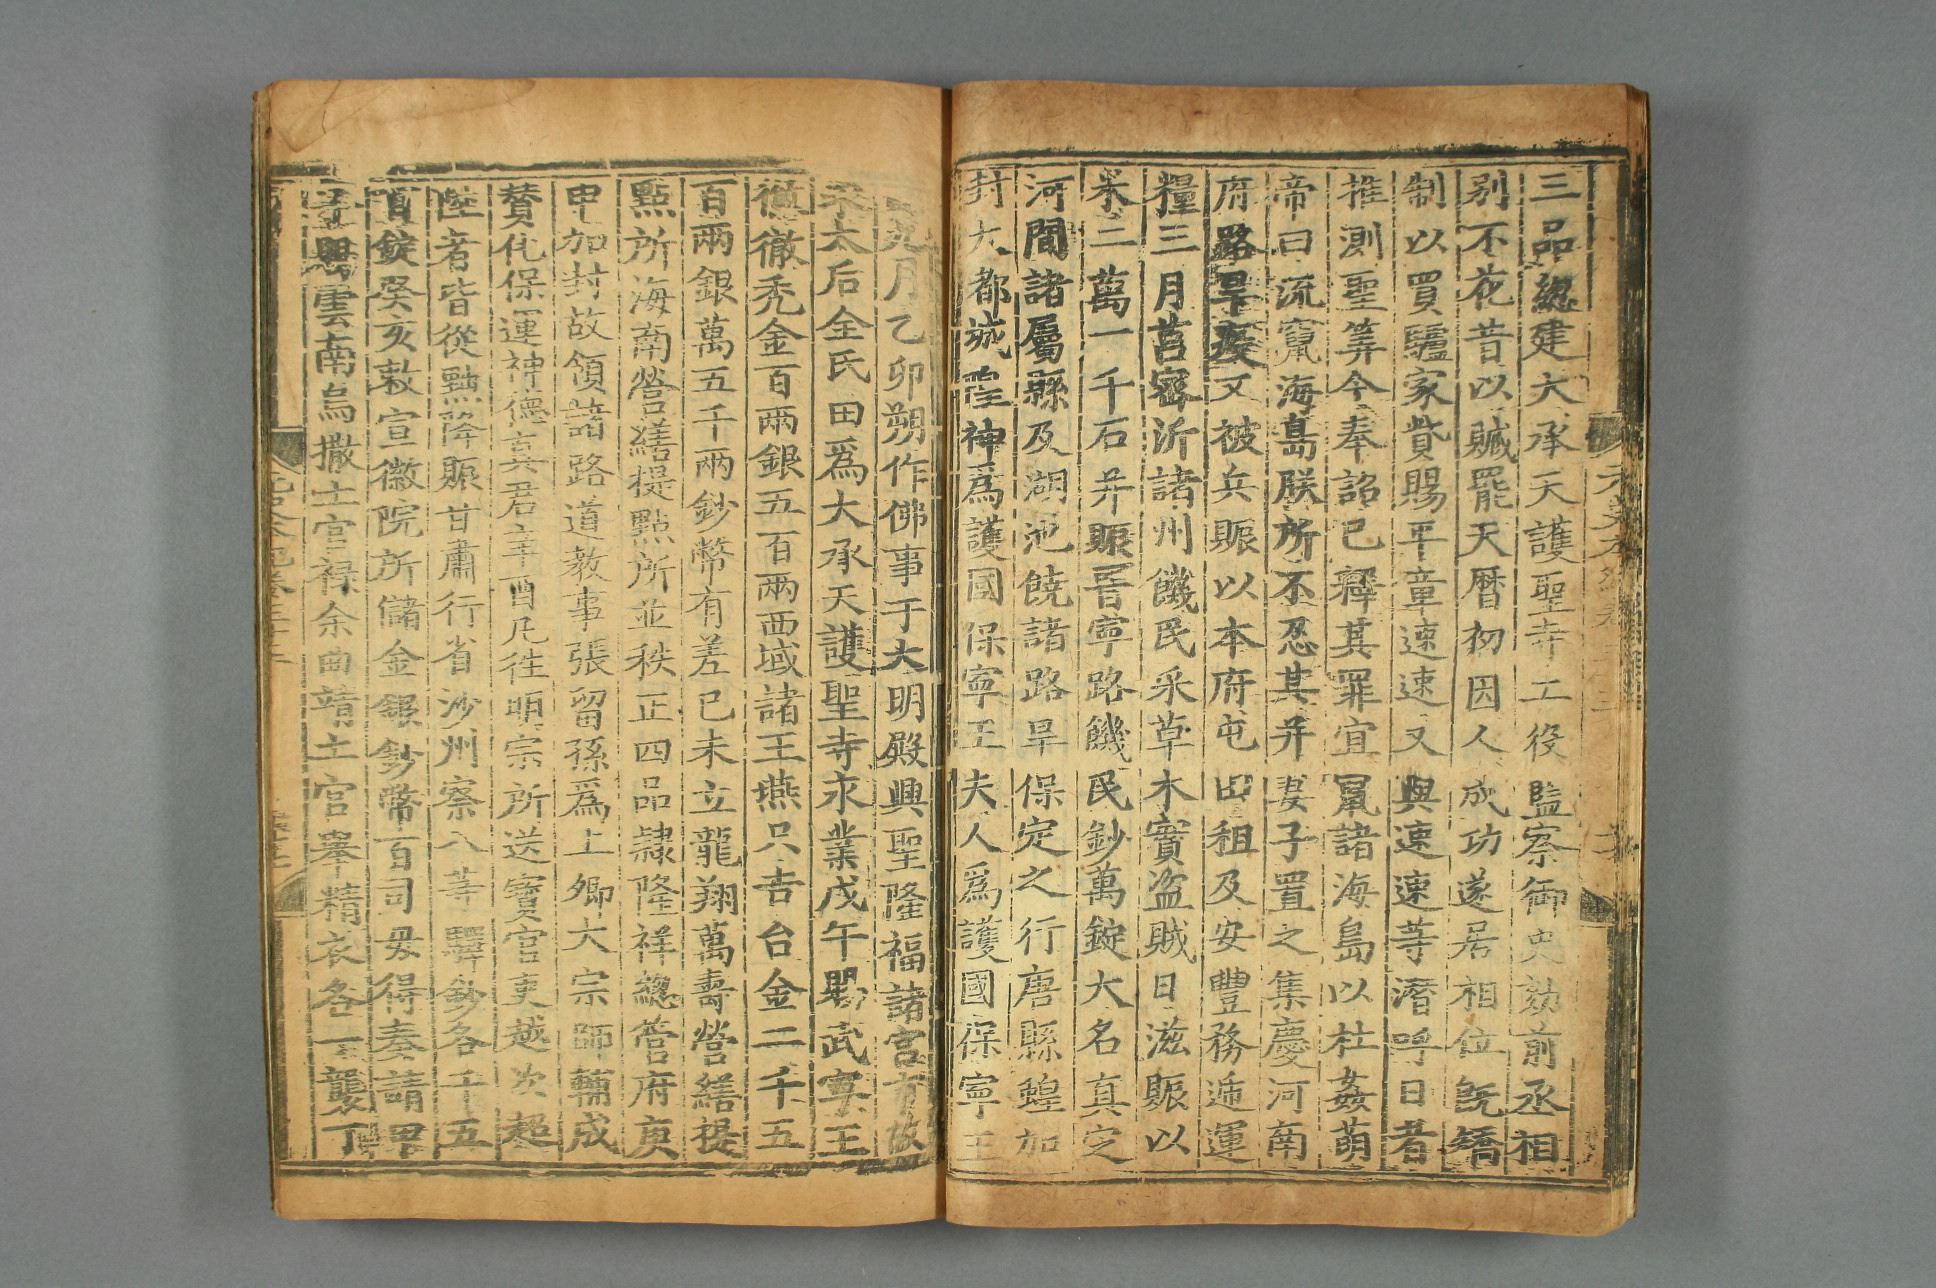 三品總建大承天護聖寺工役監察御史劾前丞相
別不花昔以贓罷天曆初因人成功遂居相位既矯
制以買驢家貲賜平章速速又與速速等潛呼日者
推測聖筭今奉詔已釋其罪宜竄諸海島以杜姦萌
帝曰流竄海島朕所不忍其并妻子置之集慶河南
府路旱疫又被兵賑以本府屯田租及安豐務遞運
糧三月莒密沂諸州饑民采草木實盜賊日滋賑以
米二萬一千石并賑晉寧路饑民鈔萬錠大名真定
河間諸屬縣及湖池饒諸路旱保定之行唐縣蝗加
封大都城隍神爲護國保寧王夫人爲護國保寧王
月乙卯朔作佛事于大明殿興聖隆福諸宮市故
宋太后全氏田爲大承天護聖寺永業戊午武寧王
徹徹禿金百兩銀五百兩西域諸王燕只吉台金二千五
百兩銀萬五千兩鈔幣有差已未立龍翔萬壽營繕提
點所海南營繕提點所並秩正四品隸隆祥總管府庚
申加封故領諸路道教事張留孫爲上卿大宗師輔成
贊化保運神德真君辛酉凡往明宗所送寶官吏越次超
陞者皆從黜降賑甘肅行省沙州察八等驛鈔各千五
百錠癸亥敕宣徽院所儲金銀鈔幣百司毋得奏請甲
雲南烏撒土官祿余曲靖土官舉精衣各一襲丁